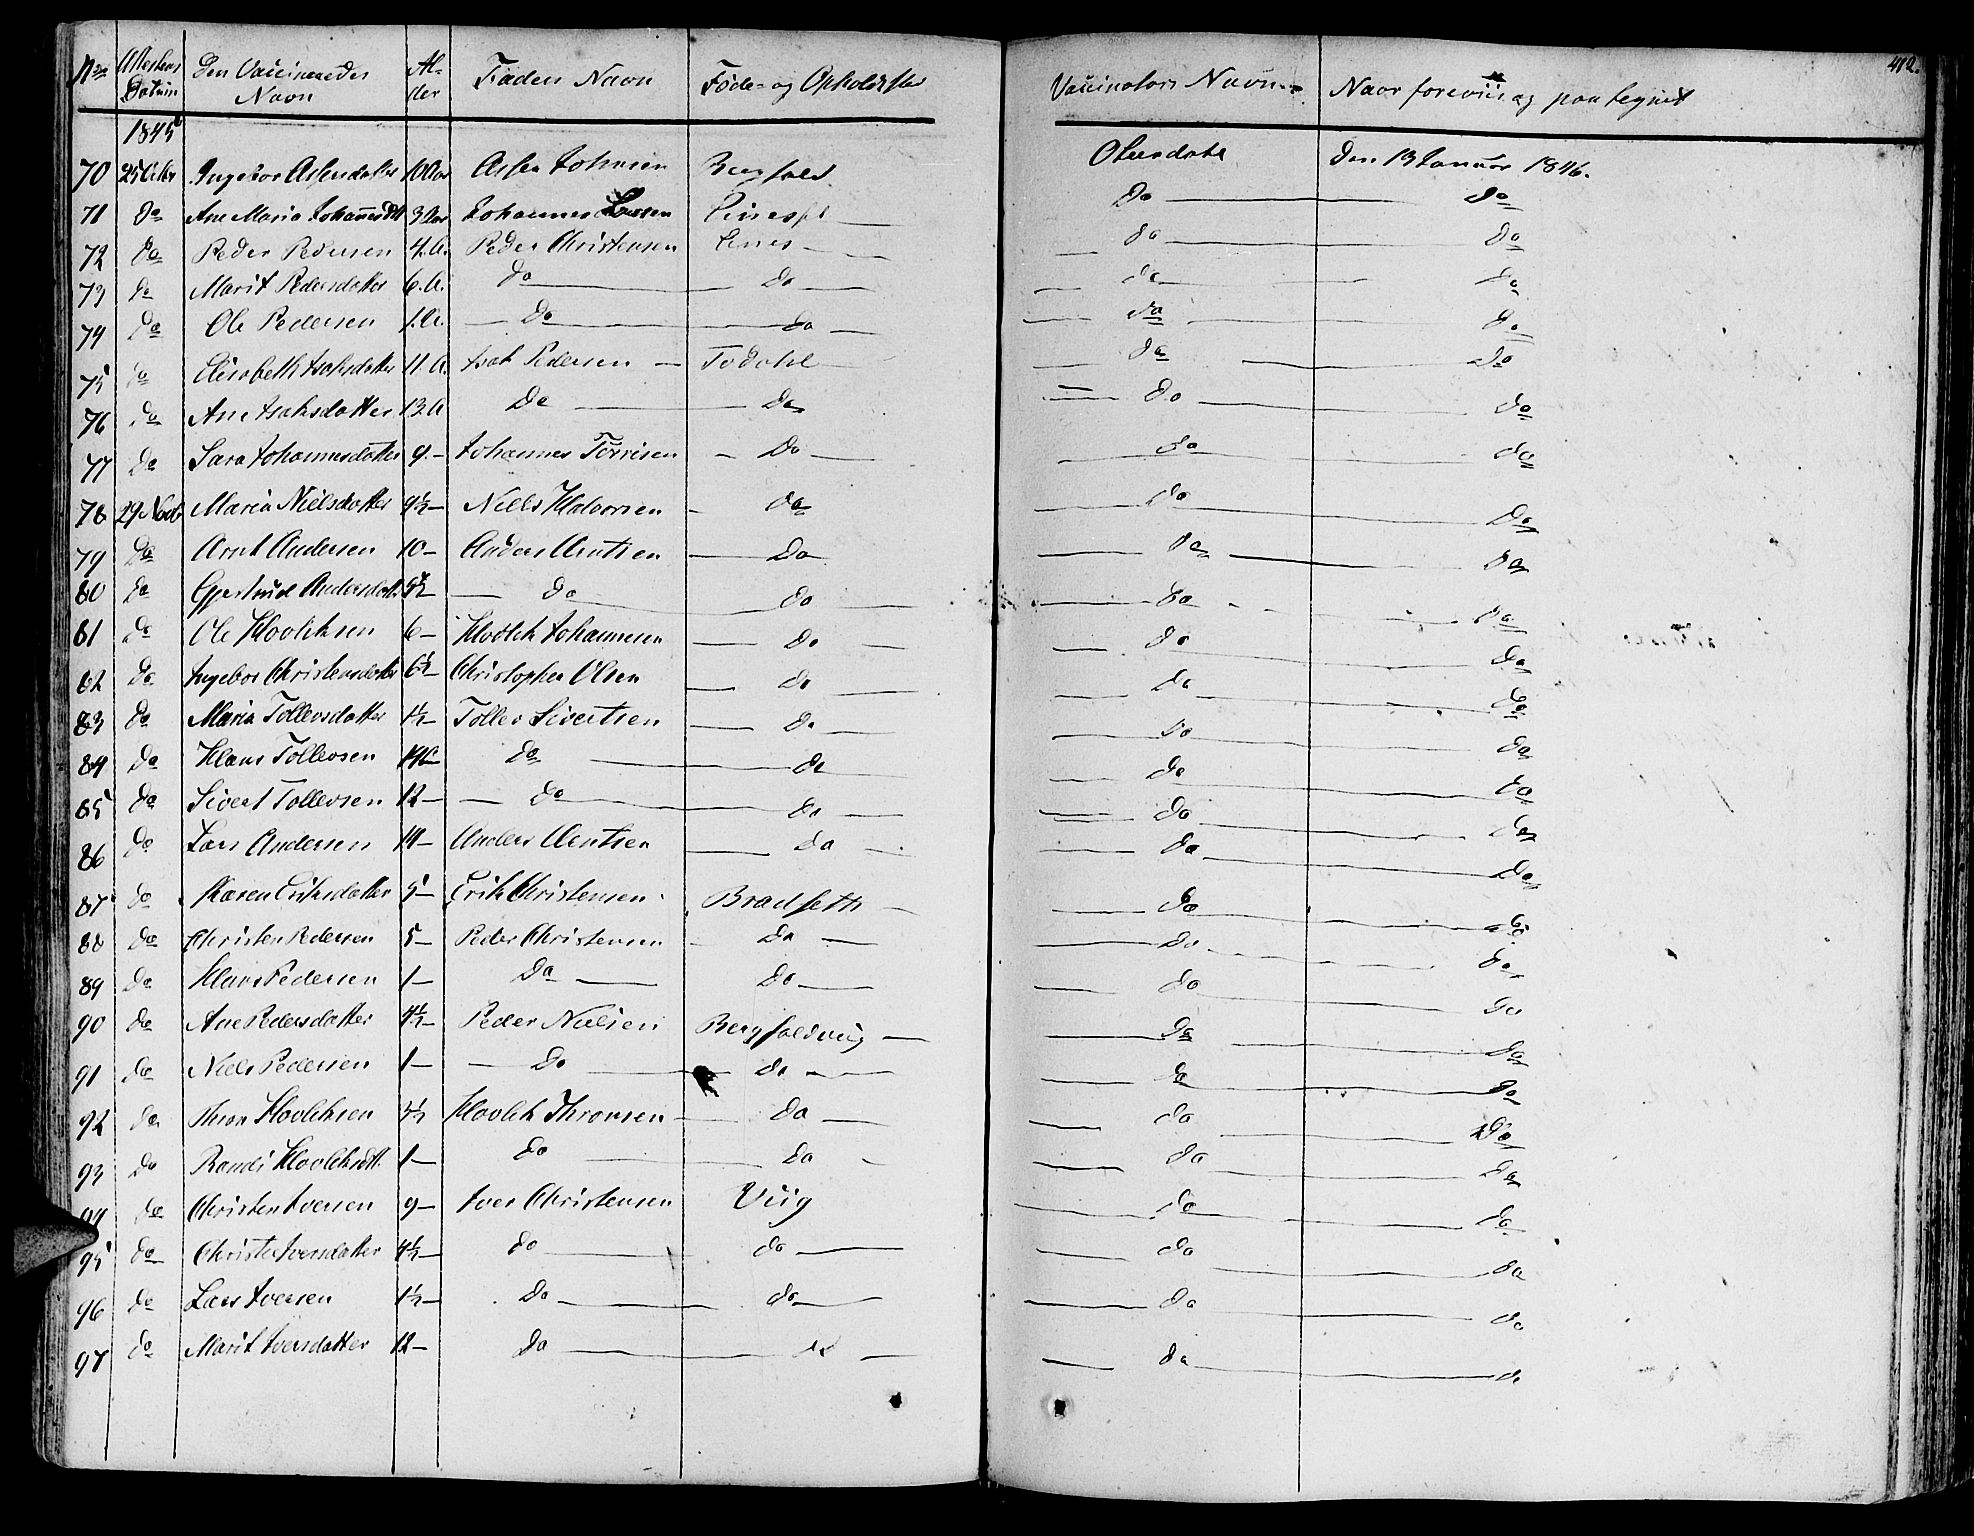 412.
No Attestens Datum Den Vaccineredes Navn Alder Faders Navn Føde- og Opholdssted Vaccinators Navn Naar foreviist og paategnet
1845
70 25 Octbr Ingebor Assendatter 10 Aar Assen Johnsen Bergfald Olsendahl Den 13 Januar 1846.
71 Do Ane Maria Johannesdtt 3 Aar Johannes Larsen Do Do
72 Do Peder Pedersen 4. A. Peder Christensen Do Do
73 Do Marit Pedersdatter 6. A. Do Do Do Do
74 Do Ole Pedersen 1. A. Do Do Do Do
75 Do Elisabeth Isaksdatter 11. A. Isak Pedersen Todahl Do Do
76 Do Ane Isaksdatter 13. A Do Do Do Do
77 Do Sara Johannesdatter 9 – Johannes Torrisen Do Do Do
78 29 Novb Maria Nielsdatter 9½ – Niels Halvorsen Do Do Do
79 Do Arnt Andersen 10 – Anders Arntsen Do Do Do
80 Do Gjertrud Andersdatt. Do Do Do Do
81 Do Ole Hovleksen 6 – Hovlek Johannesen Do Do Do
82 Do Ingebor Christensdatter 6½ – Christopher Olsen Do Do Do
83 Do Maria Tollevsdatter 1½ – Tollev Sivertsen Do Do Do
84 Do Hans Tollevsen Do Do Do Do
85 Do Sivert Tollevsen 12 – Do Do Do Do
86 Do Lars Andersen 14 – Anders Arntsen Do Do Do
87 Do Karen Eriksdatter 5 – Erik Christensen Bradseth Do Do
88 Do Christen Pedersen 5 – Peder Christensen Do Do Do
89 Do Hans Pedersen 1 – Do Do Do Do
90 Do Ane Pedersdatter 4½ – Peder Nielsen Bergfaldviig Do Do
91 Do Niels Pedersen 1 – Do Do Do Do
92 Do Thron Hovleksen Hovlek Thronsen Do Do Do
93 Do Randi Hovleksdtt. 1 – Do Do Do Do
94 Do Christen Iversen 9 – Iver Christensen Viig Do Do
95 Do Christi Iversdatter 4½ – Do Do Do Do
96 Do Lars Iversen 1½ – Do Do Do Do
97 Do Marit Iversdatter 12 – Do Do Do Do